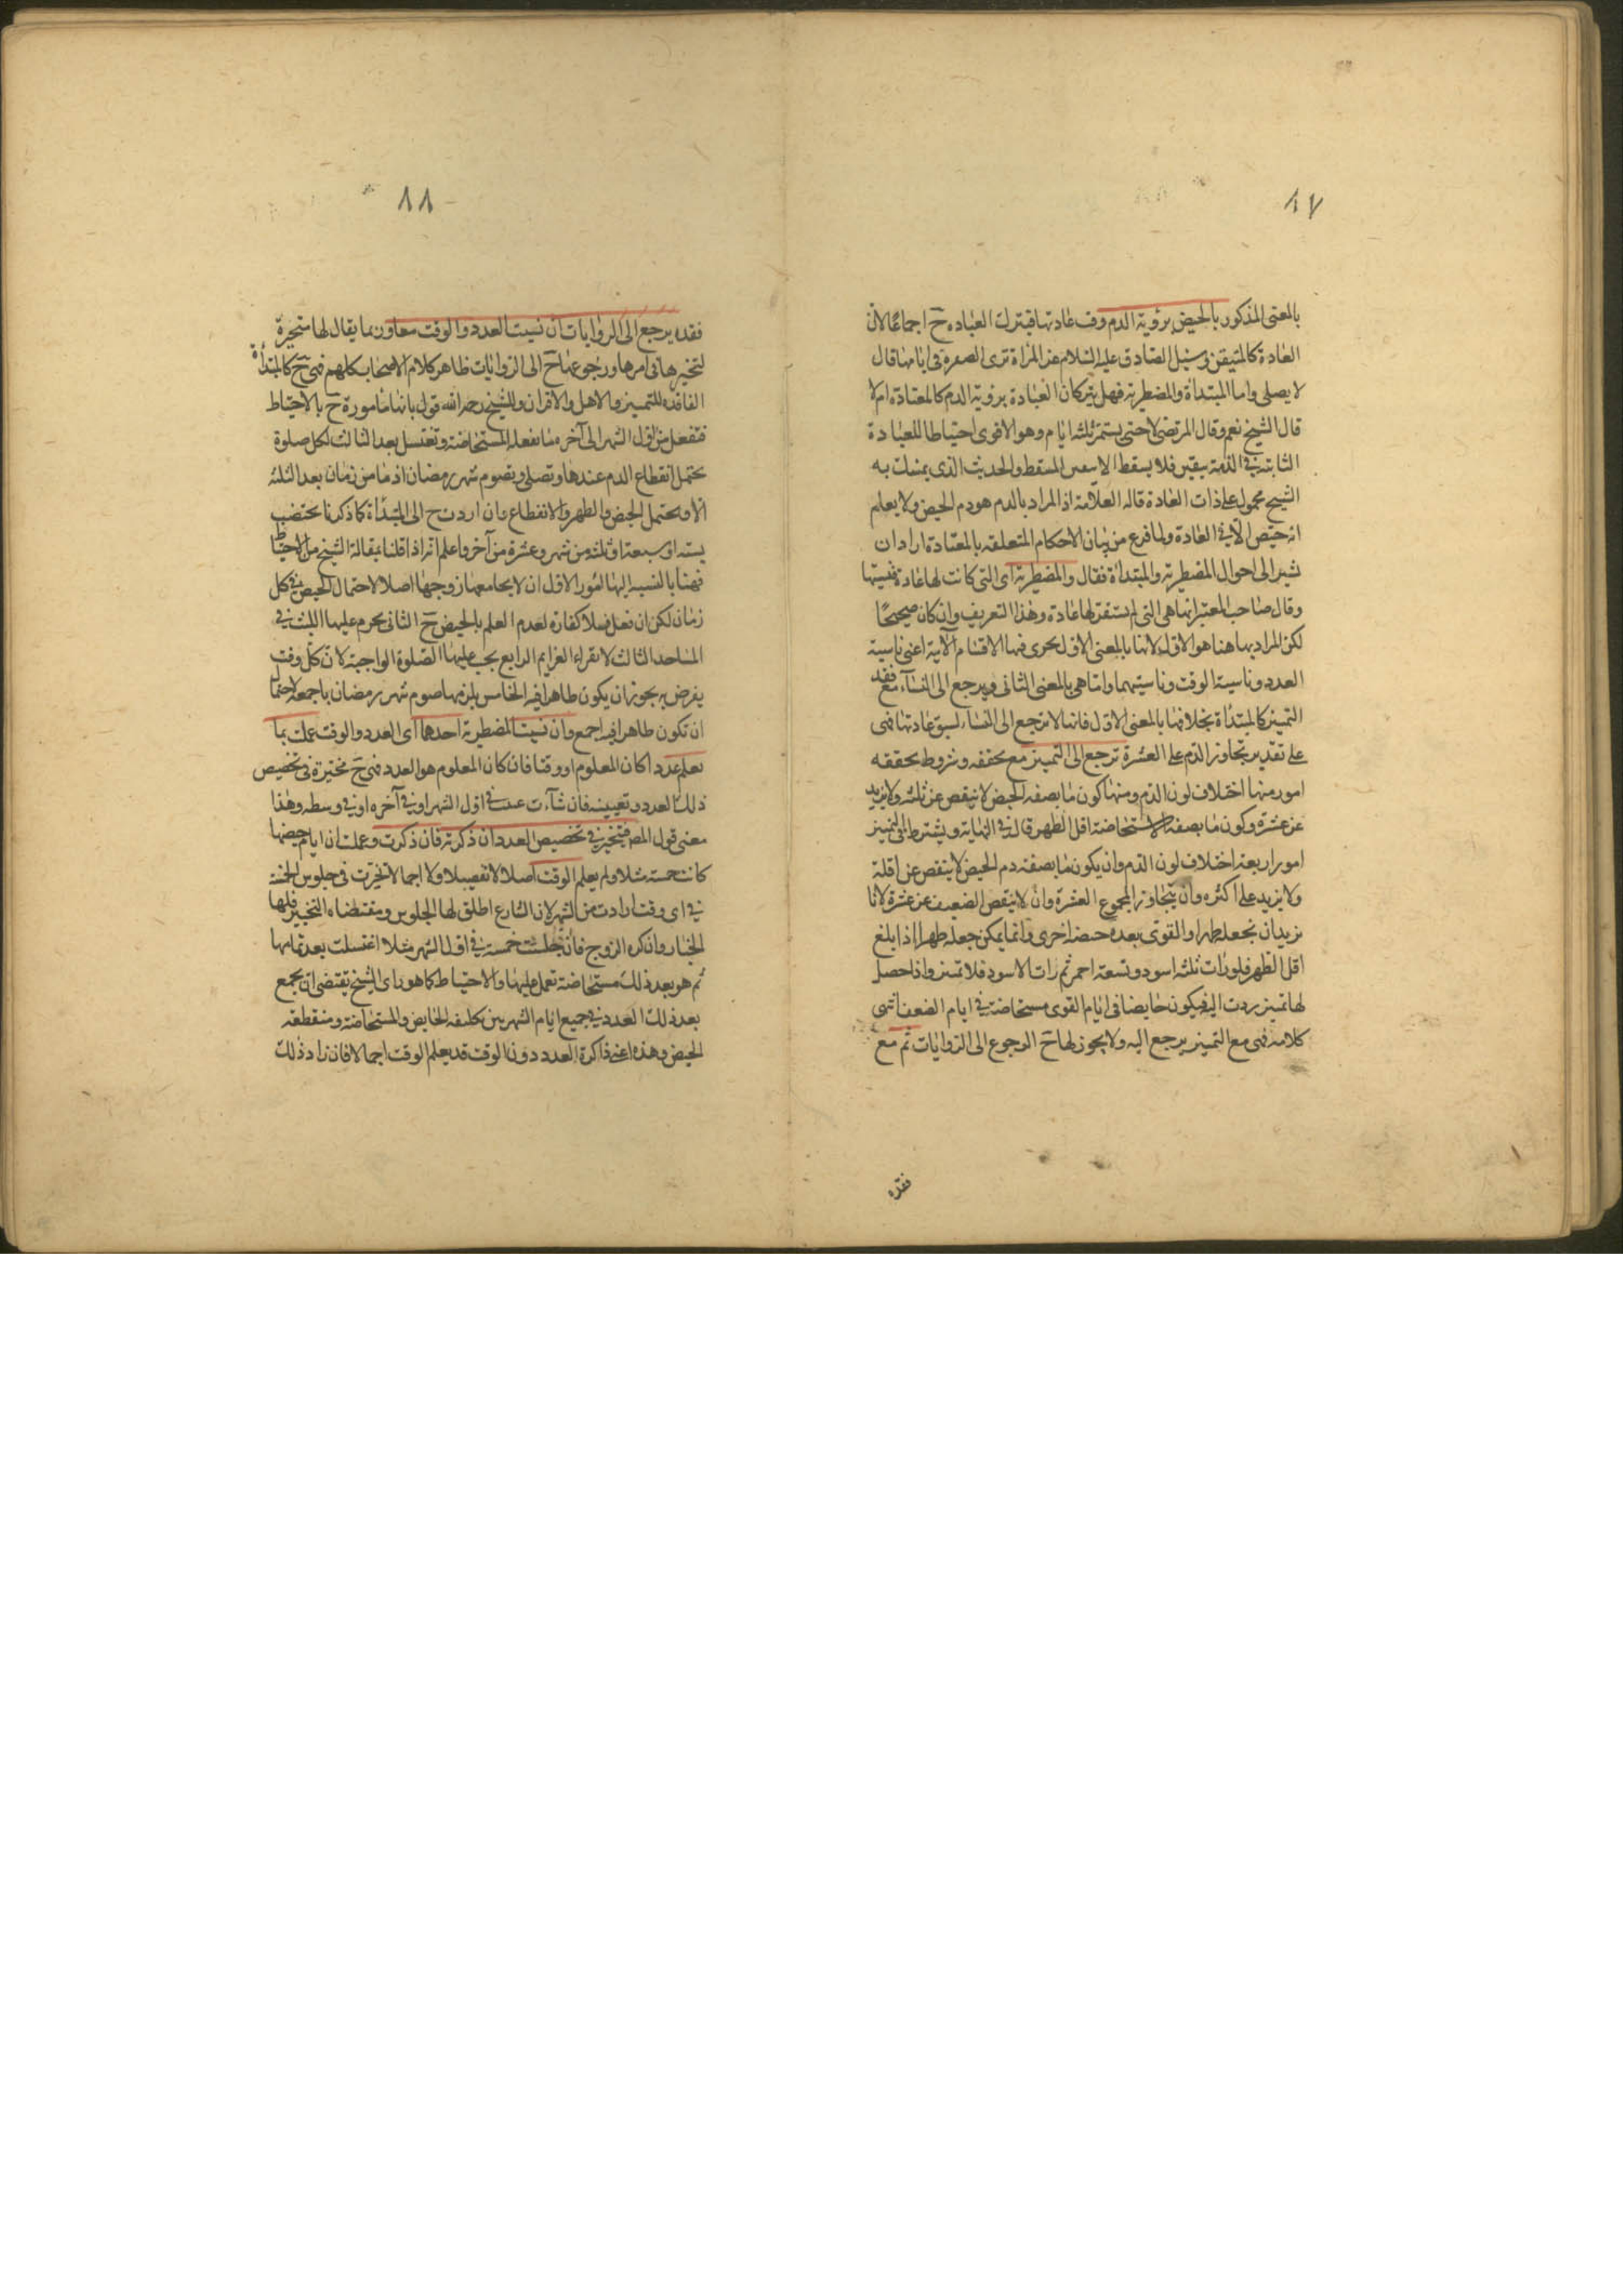 ٨٧
بالمعنى المذكور بالحيض برؤية الدم وقت عادتها فتترك العباده ح اجماعا لان
العادة كالمتيقن وسئل الصادق عليه السلام عن المراة ترى الصفرة في ايامها قال
لا يصلى واما المبتدأة والمضطربة فهل يتركان العبادة برؤية الدم كالمعتادة ام لا
قال الشيخ نعم وقال المرتضى لا حتى يستمر ثلثه ايام وهو الاقوى احتياطا للعبادة
الثابتة في الذمة بيقين فلا يسقط الا بيقين المسقط والحديث الذى يمسك به
الشيخ محمول على ذات العادة قاله العلامة اذ المراد بالدم هو دم الحيض ولا يعلم
انه حيض الا في العادة ولما فرغ من بيان الاحكام المتعلقه بالمعتادة اراد ان
يشير الى احوال المضطربة والمبتدأة فقال والمضطربة اى التى كانت لها عادة فنسيتها
وقال صاحب المعتبر انما هى التى لم يستقر لها عادة وهذا التعريف وان كان صحيحًا
لكن المراد بها هنا هو الاول لانها بالمعنى الاول يجرى فيها الاقسام الآتية اعنى ناسية
العدد وناسية الوقت وناسيتهما واما هى بالمعنى الثانى ويرجع الى النساء مع فقد
التميز كالمبتدأة بخلافها بالمعنى الاول فانها لا ترجع الى النساء لسبق عادتها فهى
على تقدير تجاوز الدم على العشرة ترجع الى التميز مع تحققه وشروط تحققه
امور منها اختلاف لون الدم ومنها كون ما بصفه الحيض لا ينقص عن ثلثه ولا يزيد
عن عشرة وكون ما بصفة الاستحاضة اقل الطهر قال في النهاية ويشترط في التميز
امور اربعة اختلاف لون الدم وان يكون ما بصفة دم الحيض لا ينقص عن اقلة
ولا يزيد على اكثره وان يتجاوز المجموع العشرة وان لا ينقص الضعيف عن عشرة لانا
نريد ان نجعله طهرا والقوى بعده حيضه اخرى وانما يمكن جعله طهرا اذا بلغ
اقل الطهر فلو رات ثلثه اسود وتسعة احمر ثم رات الاسود فلا تميز واذا حصل
لها تميز ردت اليه فيكون حايضا في ايام القوى مستحاضة في ايام الضعف انتهى
كلامه فهى مع التميز يرجع اليه ولا يجوز لها ح الرجوع الى الروايات ثم مع
فقده
٨٨
فقده يرجع الى الروايات ان نسيت العدد والوقت معا وربما يقال لها متحيرة
لتحيرها في امرها ورجوعها ح الى الروايات ظاهر كلام الاصحاب كلهم فهى ح كالمبتدأة
الفاقده للتميز والاهل والاقران وللشيخ رحمه الله قول بانها مامورة ح بالاحتياط
فتفعل من اول الشهر الى آخره ما تفعله المستحاضة وتغتسل بعد الثالث لكل صلوة
يحتمل انقطاع الدم عندها وتصلى وتصوم شهر رمضان اذ ما من زمان بعد الثلثه
الا ويحتمل الحيض والطهر والانقطاع وان اردت ح الى المبتدأة كما ذكرنا
بستة او سبعة او ثلثه من شهر وعشرة من آخر واعلم انه اذا قلنا بمقالة الشيخ من الاحتياط
فهنا بالنسبة اليها امور الاول ان لا يجامعها زوجها اصلا لاحتمال الحيض في كل
زمان لكن ان فعل فلا كفاره لعدم العلم بالحيض ح الثانى يحرم عليها اللبث في
المساجد الثالث لا تقراء العزايم الرابع يجب عليها الصلوة الواجبة لان كل وقت
يفرض به يجوز ان يكون طاهرا فيه الخامس يلزمها صوم شهر رمضان باجمعه لاحتمال
ان تكون طاهرا فيه اجمع وان نسيت المضطربة احدهما اى العدد والوقت عملت بما
تعلم عددا كان المعلوم او وقتا فان كان المعلوم هو العدد فهى ح مخيرة في تخصيص
ذلك العدد وتعيينه فان شاءت في اول الشهر او في آخره او في وسطه وهذا
معنى قول المصـ فتتخير في تخصيص العدد ان ذكرته فان ذكرت وعملت ان ايام حيضها
كانت خمسه مثلا ولم يعلم الوقت اصلا لا تفصيلا ولا اجمالا تخيرت في جلوس الخمسة
في اى وقت ارادت من الشهر لان الشارع اطلق لها الجلوس ومقتضاه التخيير فلها
الخيار وان كره الزوج فان جلست خمسة في اول الشهر مثلا اغتسلت بعد تمامها
ثم هو بعد ذلك مستحاضة تعمل عليها والاحتياط كما هو راى الشيخ يقتضى ان يجمع
بعد ذلك العدد في جميع ايام الشهر بين تكليفه الحايض والمستحاضة ومنقطعة
الحيض وهذه اعنى ذاكرة العدد دون الوقت قد يعلم الوقت اجمالا فان زاد ذلك